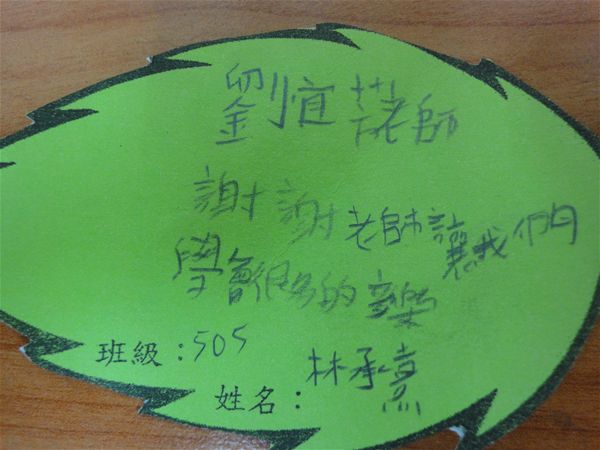 劉恒芳老師
謝謝老師讓我們
學會很多的音樂
班級：505
姓名：林承熹